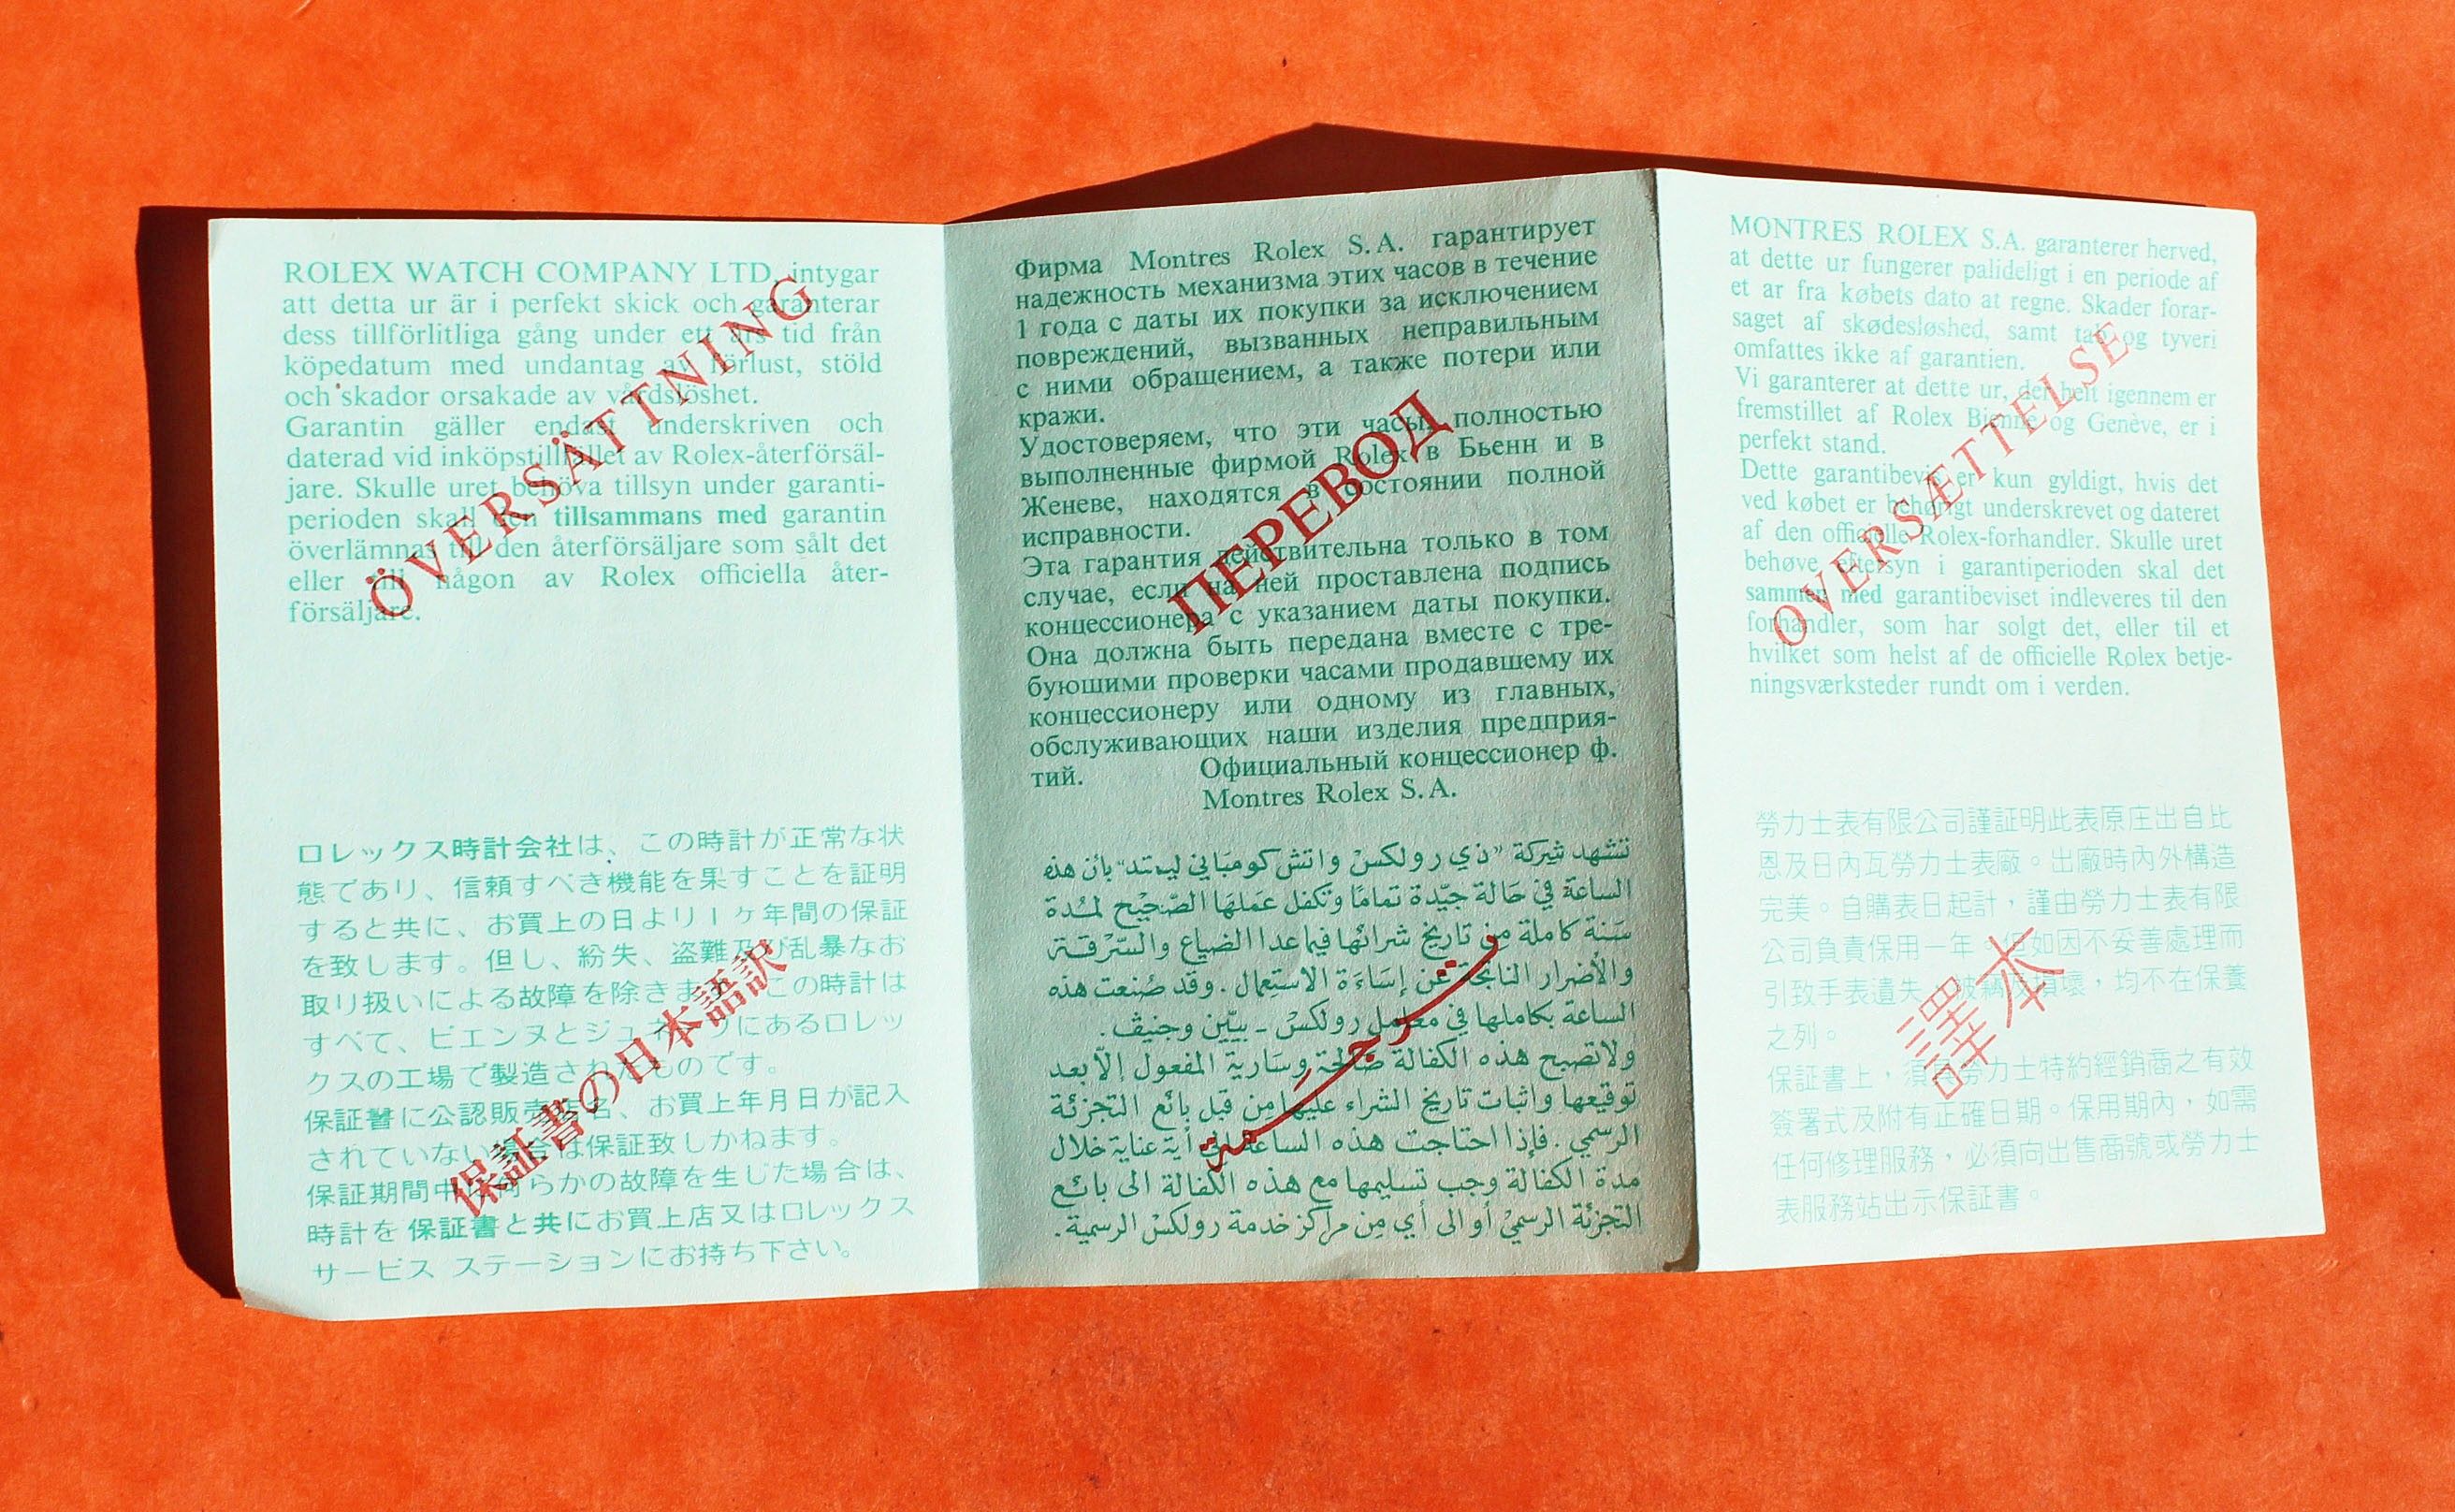 ROLEX WATCH COMPANY LTD. intygar
att detta ur är i perfekt skick och garanterar
dess tillförlitliga gång under ett års tid från
köpedatum med undantag av förlust, stöld
och skador orsakade av vårdslöshet.
Garantin gäller endast underskriven och
daterad vid inköpstillfället av Rolex-återförsäl-
jare. Skulle uret behöva tillsyn under garanti-
perioden skall den tillsammans med garantin
överlämnas till den återförsäljare som sålt det
eller till någon av Rolex officiella åter-
försäljare.
ÖVERSÄTTNING
ロレックス時計会社は、この時計が正常な状
態であり、信頼すべき機能を果すことを証明
すると共に、お買上の日より1ヶ年間の保証
を致します。但し、紛失、盗難及び乱暴なお
取り扱いによる故障を除きます。この時計は
すべて、ビエンヌとジュネーブにあるロレッ
クスの工場で製造されたものです。
保証書に公認販売店名、お買上年月日が記入
されていない場合は保証致しかねます。
保証期間中何らかの故障を生じた場合は、
時計を保証書と共にお買上店又はロレックス
サービス ステーションにお持ち下さい。
保証書の日本語訳
Фирма Montres Rolex S.A. гарантирует
надежность механизма этих часов в течение
1 года с даты их покупки за исключением
повреждений, вызванных неправильным
с ними обращением, а также потери или
кражи.
Удостоверяем, что эти часы, полностью
выполненные фирмой Rolex в Бьенн и в
Женеве, находятся в состоянии полной
исправности.
Эта гарантия действительна только в том
случае, если на ней проставлена подпись
концессионера с указанием даты покупки.
Она должна быть передана вместе с тре-
буюшими проверки часами продавшему их
концессионеру или одному из главных,
обслуживающих наши изделия предприя-
тий. Официальный концессионер ф.
Montres Rolex S.A.
ПЕРЕВОД
تشهد شركة "ذي رولكسْ واتش كومبَاني ليمتد" بأن هذه
الساعة في حَالة جيّدة تمامًا وتكفل عَملهَا الصّحيْح لمُدة
سَنة كاملة من تاريخ شرائها فيما عدا الضياع والسّرقة
والأضرار الناتجة عن إسَاءَة الاستعمال . وقد صُنعت هذه
الساعة بكاملها في معامل رولكسْ - بيّين وجنيڤ .
ولاتصبح هذه الكفالة صَالحة وسَارية المفعول إلاّ بعد
توقيعها واثبات تاريخ الشراء عليها من قبل بائع التجزئة
الرسمي . فإذا احتاجت هذه الساعة إلى أية عناية خلال
مدة الكفالة وجب تسليمها مع هذه الكفالة الى بائع
التجزئة الرسميْ أو الى أي مِن مراكز خدمة رولكسْ الرسمية .
ترجَمة
MONTRES ROLEX S.A. garanterer herved,
at dette ur fungerer palideligt i en periode af
et ar fra købets dato at regne. Skader forar-
saget af skødesløshed, samt tab og tyveri
omfattes ikke af garantien.
Vi garanterer at dette ur, der helt igennem er
fremstillet af Rolex Bienne og Genève, er i
perfekt stand.
Dette garantibevis er kun gyldigt, hvis det
ved købet er behørigt underskrevet og dateret
af den officielle Rolex-forhandler. Skulle uret
behøve eftersyn i garantiperioden skal det
sammen med garantibeviset indleveres til den
forhandler, som har solgt det, eller til et
hvilket som helst af de officielle Rolex betje-
ningsværksteder rundt om i verden.
OVERSÆTTELSE
勞力士表有限公司謹証明此表原庄出自比
恩及日內瓦勞力士表廠。出廠時內外構造
完美。自購表日起計，謹由勞力士表有限
公司負責保用一年。但如因不妥善處理而
引致手表遺失、被竊及損壞，均不在保養
之列。
保証書上，須具勞力士特約經銷商之有效
簽署式及附有正確日期。保用期內，如需
任何修理服務，必須向出售商號或勞力士
表服務站出示保証書。
譯本